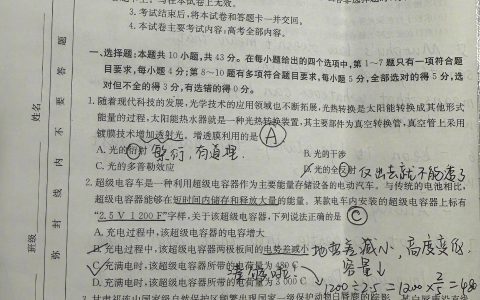 上把，与在本试卷上无效。
3. 考试结束后，将本试卷和答题卡一并交回。
4. 本试卷主要考试内容：高考全部内容。
一、选择题：本题共 10 小题，共 43 分。在每小题给出的四个选项中，第 1～7 题只有一项符合题
目要求，每小题 4 分；第 8～10 题有多项符合题目要求，每小题 5 分，全部选对的得 5 分，选
对但不全的得 3 分，有选错的得 0 分。
1. 随着现代科技的发展，光学技术的应用领域也不断拓展，光热转换是太阳能转换成其他形式
能量的过程，太阳能热水器就是一种光热转换装置，其主要部件为真空转换管，真空管上采用
镀膜技术增加透射光，增透膜利用的是 A
A. 光的衍射 繁衍，有道理 B. 光的干涉
C. 光的多普勒效应 D. 光的全反射 仅出去就不能考了
2. 超级电容车是一种利用超级电容器作为主要能量存储设备的电动汽车，与传统的电池相比，
超级电容器能够在短时间内储存和释放大量的能量，某款电车内安装的超级电容器上标有
“2.5 V 1 200 F”字样，关于该超级电容器，下列说法正确的是 C
A. 充电过程中，该超级电容器的电容增大
B. 充电过程中，该超级电容器两极板间的电势差减小 地势差减小，高度变低
容量↓
C. 充满电时，该超级电容器所带的电荷量为 480 C
D. 充满电时，该超级电容器所带的电荷量为 3 000 C 1200÷2.5=1200×2/5=480
姓名
班级
弥 封 线 内 不 要 答 题